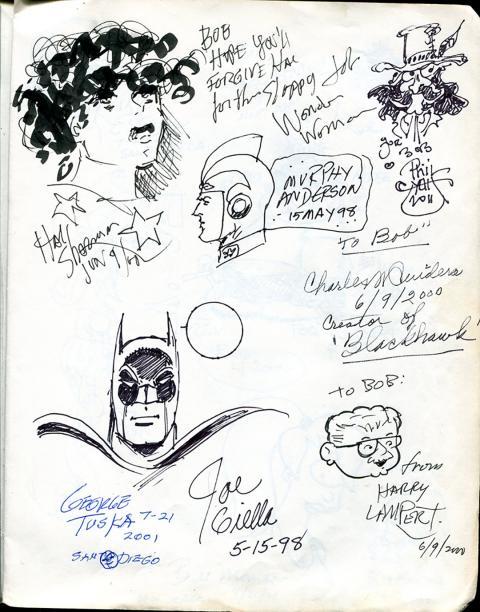 BOB
HOPE YOU'LL
FORGIVE HAL
for this sloppy Job
Wonder
Woman
for
BOB
Phil
2011
MURPHY
ANDERSON
15 MAY 98
Hal
Sherman
JUN 9/00
"To Bob"
Charles N Cuidera
6/9/2000
Creator of
"Blackhawk"
TO BOB:
from
HARRY
LAMPERT.
6/9/2000
Joe
Giella
5-15-98
GEORGE
TUSKA 7-21
2001
SAN DIEGO